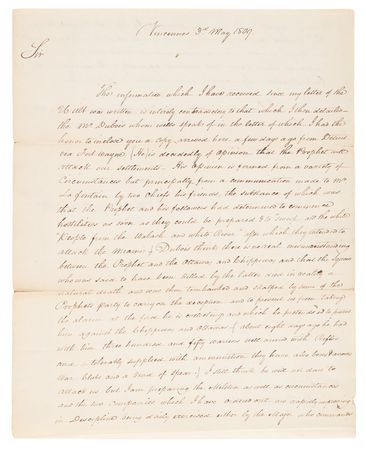 Vincennes 3rd May 1809
Sir
The information which I have received since my letter of the
26 Ult was written is entirely contradictory to that which I then detailed
the Mr Dubois whom speaks of in the letter of which I has the
honor to inclose you a copy arrived here a few days ago from Detroit
via Fort Wayne. He is decidedly of opinion that the Prophet will
attack our settlements. His opinion is formed from a variety of
Circumstances but principally from a communication made to Mr
La fontain by two of his friends, the substance of which was
that the Prophet and his followers had determined to commence
hostilities as soon as they could be prepared & to all the white
People from the Wabash and white River after which they intended to
attack the . Dubois thinks there is no real misunderstanding
between the Prophet and the Ottawas and Chippewas and that the Squaw
who was said to have been killed by the latter died in reality a
natural death and was then tomhawked and scalped by some of the
Prophets Party to carry on the deception and to prevent us from taking
the alarm at the force he is collecting and which he pretends is to protect
him against the Chippewas and Ottawas. about eight days ago he had
with him three hundred and fifty warriors well armed with Rifles
and tolerably supplied with ammunition they have also bows & arrows
War Clubs and a kind of spear. I still think he will not dare to
attack us but I am preparing the Militia as well as circumstances
and the two Companies which I have ordered out are rapidly improving
in Discipline being daily exercised either by the Major who commands